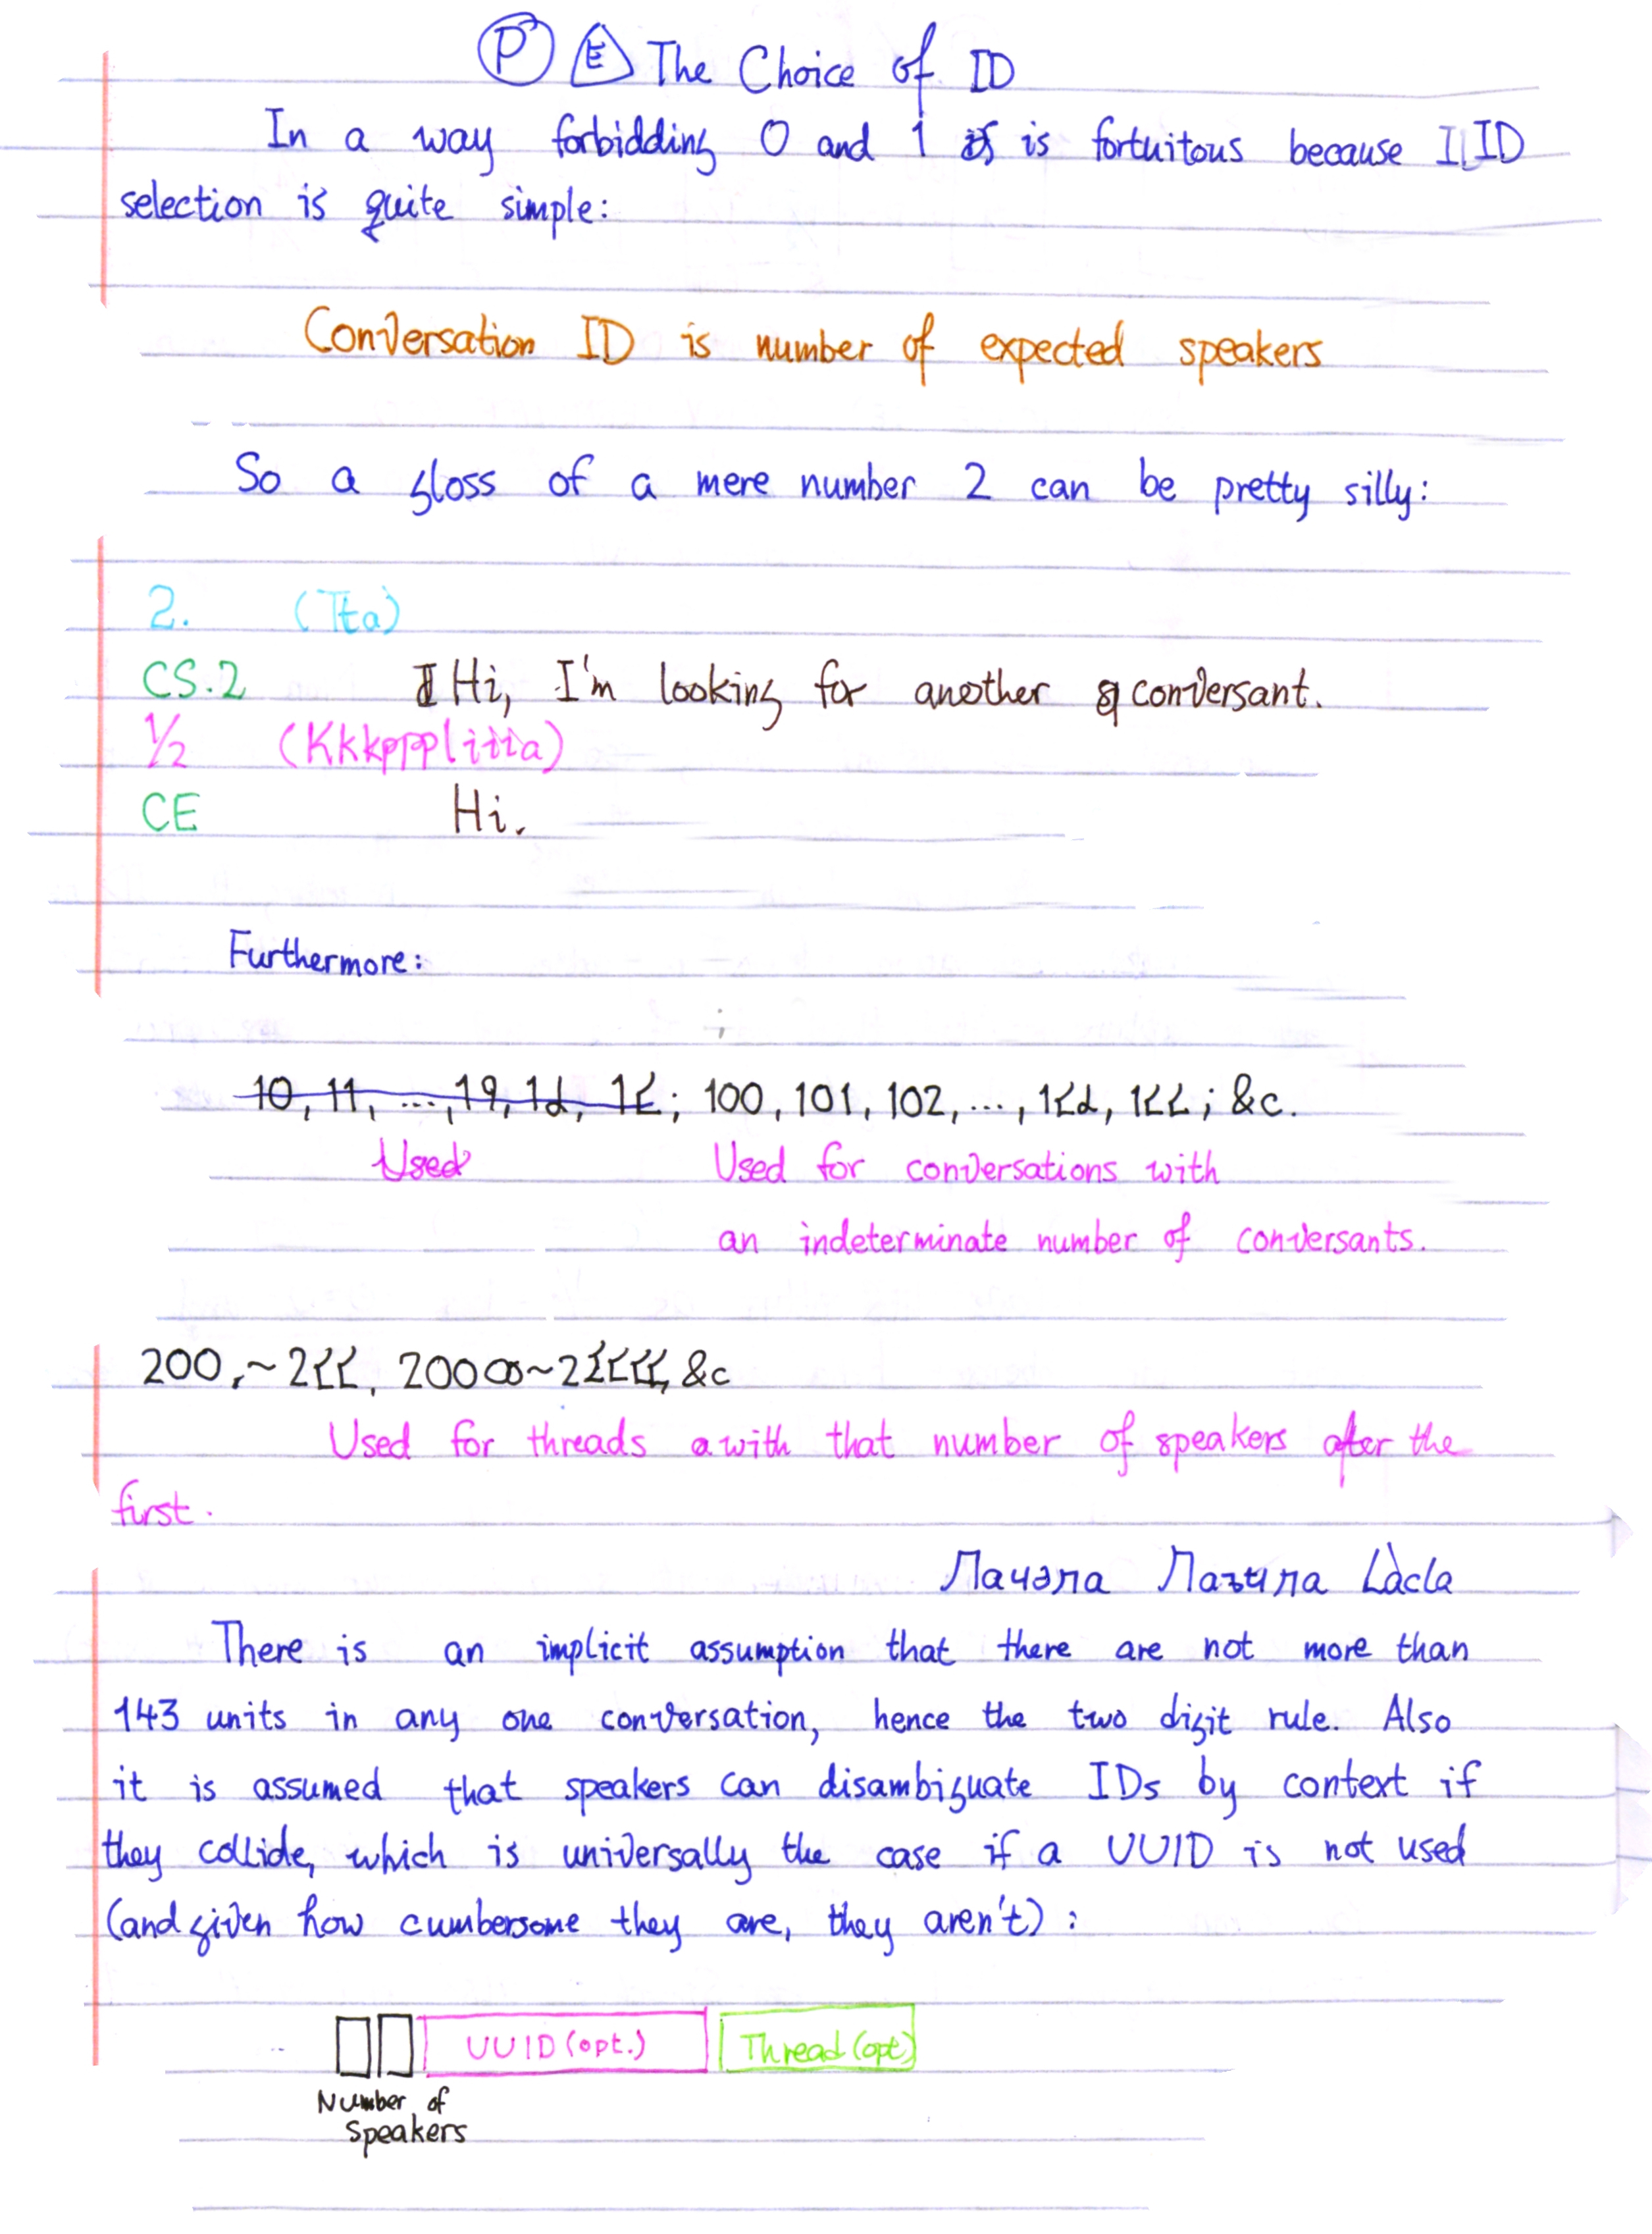 P E The Choice of ID
In a way forbidding 0 and 1 is is fortuitous because I ID
selection is quite simple:
Conversation ID is number of expected speakers
So a gloss of a mere number 2 can be pretty silly:
2. (Tta)
CS.2 I Hi, I'm looking for another conversant.
1/2 (Kkkppplitta)
CE Hi.
Furthermore:
10, 11, ..., 19, 1d, 1Ɛ; 100, 101, 102, ..., 1ƐƐd, 1ƐƐ; &c.
Used Used for conversations with
an indeterminate number of conversants.
200,~2ƐƐ, 20000~2ƐƐƐƐ, &c
Used for threads with that number of speakers after the
first.
There is an implicit assumption that there are not more than
143 units in any one conversation, hence the two digit rule. Also
it is assumed that speakers can disambiguate IDs by context if
they collide, which is universally the case if a UUID is not used
(and given how cumbersome they are, they aren't):
UUID (opt.) Thread (opt)
Number of
Speakers